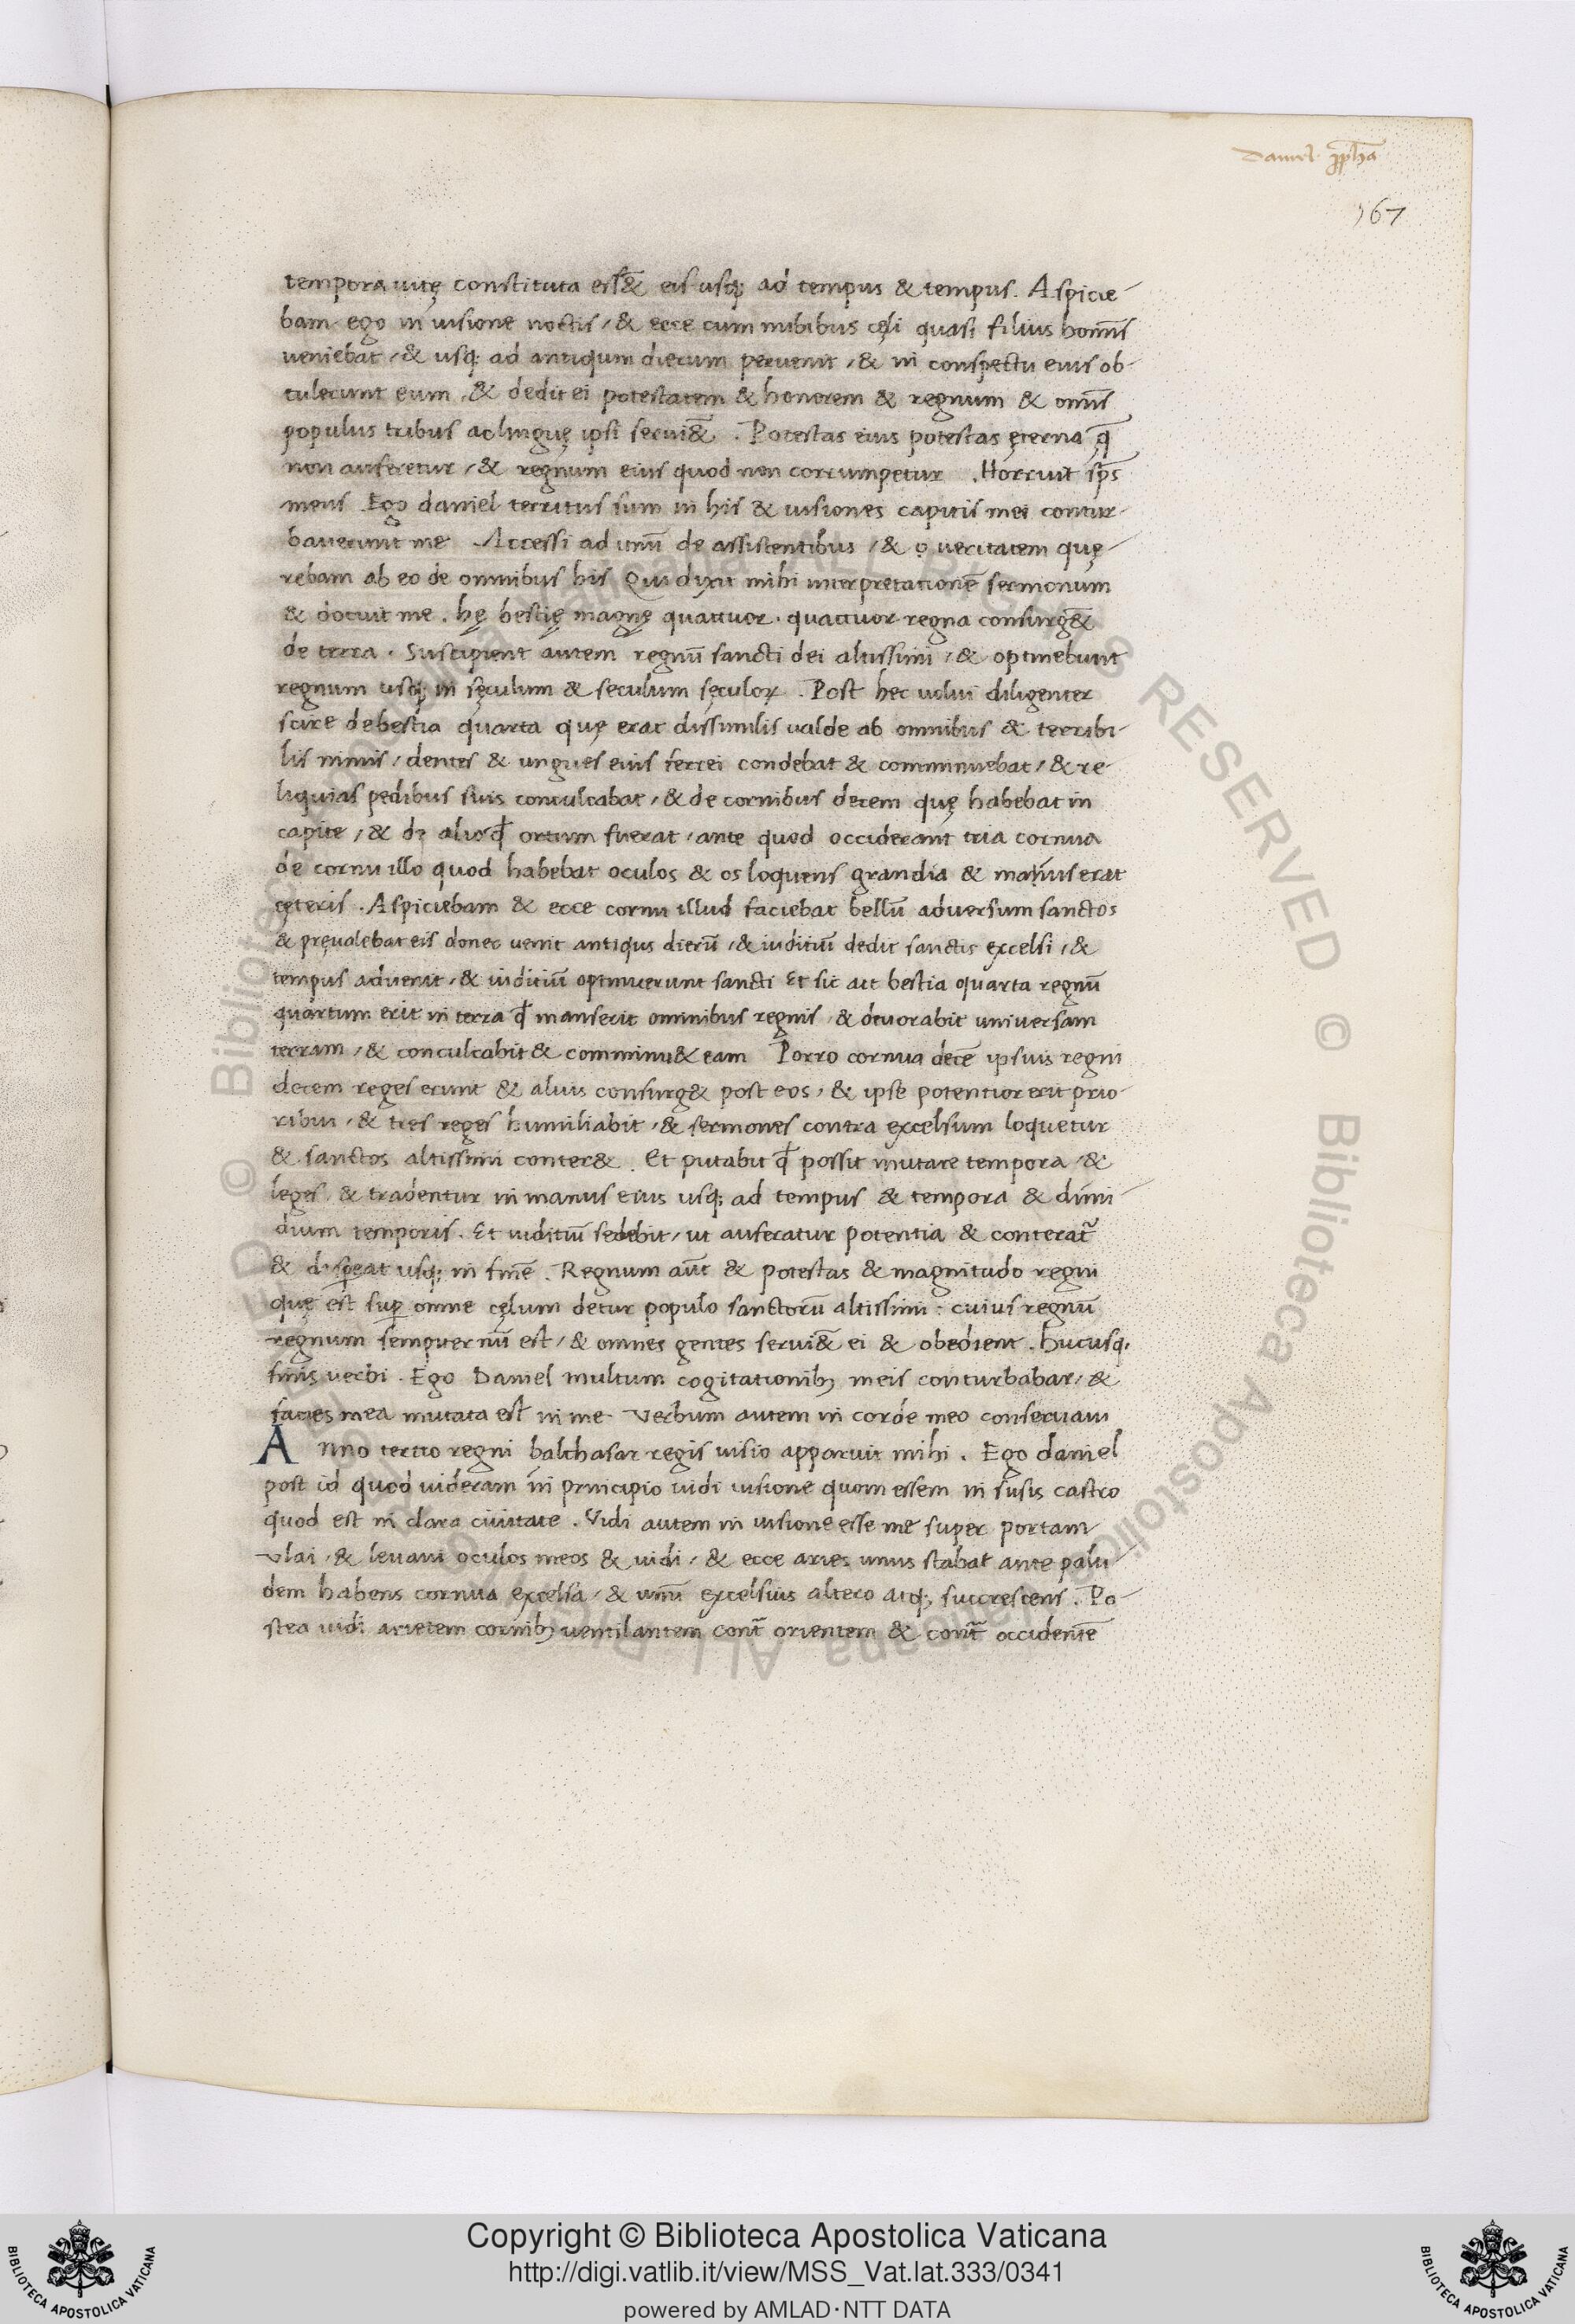 Daniel. ꝓph̄a
167
tempora uitę constituta ess&̄ eis usq; ad tempus & tempus. Aspicie-
bam ego in uisione noctis / & ecce cum nubibus cęli quasi filius hominis
ueniebat / & usq; ad antiqum dierum peruenit / & in conspectu eius ob-
tulerunt eum / & dedit ei potestatem & honorem & regnum & om̄s
populus tribus ac linguę ipsi serui&̄ . Potestas eius potestas ęterna q̄
non auferetur / & regnum eius quod non corrumpetur . Horruit sp̄s
meus Ego daniel territus sum in his & uisiones capitis mei contur-
bauerunt me Accessi ad unū de assistentibus / & veritatem quę-
rebam ab eo de omnibus his Qui dixit mihi interpretationē sermonum
& docuit me . hę bestię magnę quattuor . quattuor regna consurg&̄
de terra . Suscipient autem regnū sancti dei altissimi / & optinebunt
regnum usq; in sęculum & seculum sęculoꝝ . Post hec uolui diligenter
scire de bestia quarta quę erat dissimilis ualde ab omnibus & terribi-
lis nimis / dentes & ungues eius ferrei comdebat & comminuebat / & re-
liquias pedibus suis conculcabat / & de cornibus decem quę habebat in
capite / & de alio qđ ortum fuerat / ante quod occiderant tria cornua
de cornu illo quod habebat oculos & os loquens grandia & maius erat
cęteris . Aspiciebam & ecce cornu illud faciebat bellū adversum sanctos
& pręualebat eis donec uenit antiqus dierū / & iuditiū dedit sanctis excelsi / &
tempus aduenit / & iuditiū optinuerunt sancti Et sic ait bestia quarta regnū
quartum erit in terra qđ manserit ominibus regnis / & devorabit universam
terram / & conculcabit & comminu& eam Porro cornua decē ipsius regni
decem reges erunt & alius consurg& post eos / & ipse potentior erit prio-
ribus / & tres reges humiliabit / & sermones contra excelsum loquetur
& sanctos altissimi conter& . Et putabit qđ possit mutare tempora / &
leges / & tradentur in manus eius usq; ad tempus & tempora & dimi-
dium temporis . Et iuditiū sedebit / ut auferatur potentia & conterat̄
& disꝑeat usq; in finē . Regnum aūt & potestas & magnitudo regni
quę est suꝑ omne cęlum detur populo sanctorū altissimi : cuius regnū
regnum sempiternū est / & omnes gentes serui&̄ ei & obedient . hucusq;
finis verbi . Ego Daniel multum cogitationibꝫ meis conturbabar / &
facies mea mutata est in me . Verbum autem in corde meo conseruaui
Anno tertio regni balthasar regis uisio apparuit mihi . Ego daniel
post id quod uideram in principio uidi uisione quom essem in susis castro
quod est in clara ciuitate . Vidi autem in uisione esse me super portam
Vlai / & leuaui oculos meos & uidi / & ecce aries unus stabat ante palu-
dem habens cornua excelsa / & unū excelsius altero atq; succrescens . Po-
stea uidi arietem cornibꝫ uentilantem cont̄ orientem & cont̄ occidentē
Copyright © Biblioteca Apostolica Vaticana
http://digi.vatlib.it/view/MSS_Vat.lat.333/0341
powered by AMLAD·NTT DATA
BIBLIOTECA APOSTOLICA VATICANA
BIBLIOTECA APOSTOLICA VATICANA